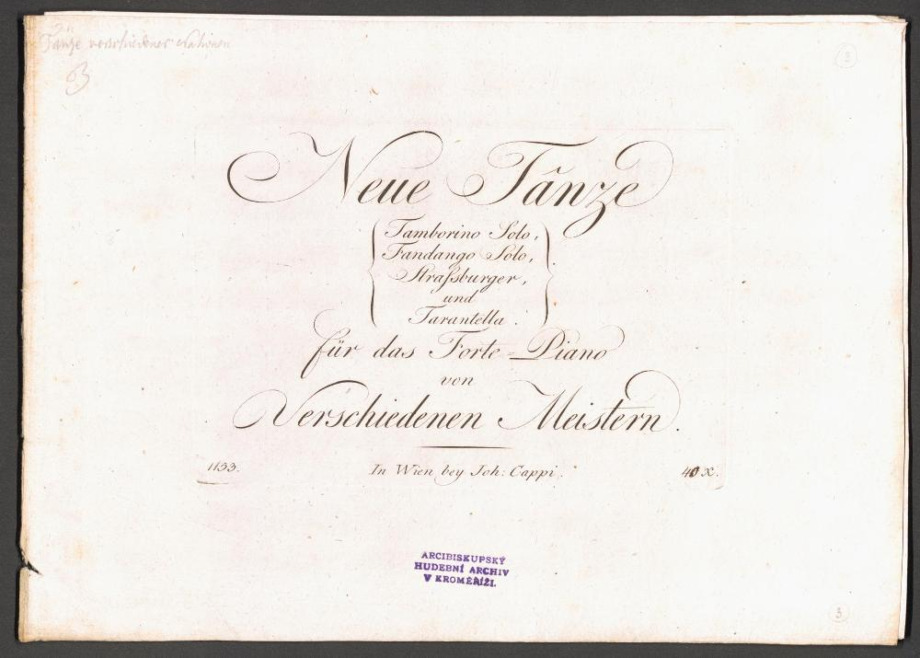 Tänze verschiedener Nationen
3
3
Neue Tänze
Tamborino Solo,
Fandango Solo,
Straſsburger,
und
Tarantella.
für das Forte-Piano
von
Verschiedenen Meistern.
1133.
In Wien bey Joh: Cappi.
40 x.
ARCIBISKUPSKÝ
HUDEBNÍ ARCHIV
V KROMĚŘÍŽI.
3